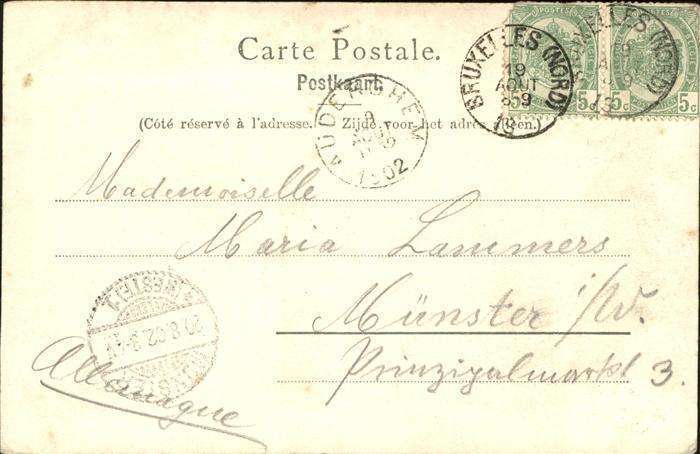 Carte Postale.
Postkaart.
(Côté réservé à l'adresse. Zijde voor het adres alleen.)
BRUXELLES (NORD)
19
AOUT
8-9
BRUXELLES (NORD)
5c 5c
AUDERGHEM
1902
Mademoiselle
Maria Lammers
Münster i/W.
Prinzipalmarkt 3.
Allemagne
(WESTF.)
20.8.02.3-4N